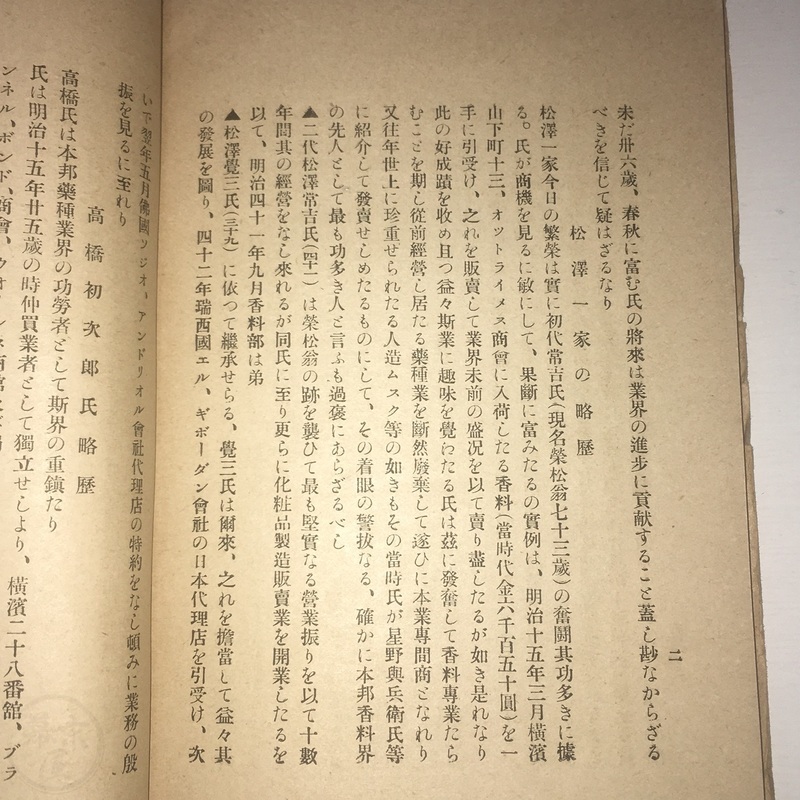 二
未だ卅六歲、春秋に富む氏の將來は業界の進步に貢献すること蓋し尠なからざる
べきを信じて疑はざるなり
松澤一家の略歷
松澤一家今日の繁榮は實に初代常吉氏(現名榮松翁七十三歲)の奮鬪其功多きに據
る。氏が商機を見るに敏にして、果斷に富みたるの實例は、明治十五年三月橫濱
山下町十三、オツトライメス商會に入荷したる香料(當時代金六千百五十圓)を一
手に引受け、之れを販賣して業界未前の盛况を以て賣り盡したるが如き是れなり
此の好成蹟を收め且つ益々斯業に趣味を覺わたる氏は茲に發奮して香料專業たら
むことを期し從前經營し居たる藥種業を斷然廢棄して遂ひに本業專問商となれり
又往年世上に珍重せられたる人造ムスク等の如きもその當時氏が星野與兵衛氏等
に紹介して發賣せしめたるものにして、その着眼の警拔なる、確かに本邦香料界
の先人として最も功多き人と言ふも過褒にあらざるべし
▲二代松澤常吉氏(四十二)は榮松翁の跡を襲ひて最も堅實なる營業振りを以て十數
年間其の經營をなし來れるが同氏に至り更らに化粧品製造販賣業を開業したるを
以て、明治四十一年九月香料部は弟
▲松澤覺三氏(三十九)に依つて繼承せらる、覺三氏は爾來、之れを擔當して益々其
の發展を圖り、四十二年瑞西國エル、ギボーダン會社の日本代理店を引受け、次
いで翌年五月佛國ツジオ、アンドリオル會社代理店の特約をなし頓みに業務の殷
振を見るに至れり
高橋初次郞氏略歷
高橋氏は本邦藥種業界の功勞者として斯界の重鎭たり
氏は明治十五年廿五歲の時仲買業者として獨立せしより、橫濱二十八番舘、ブラ
ンネル、ボンド、商會、